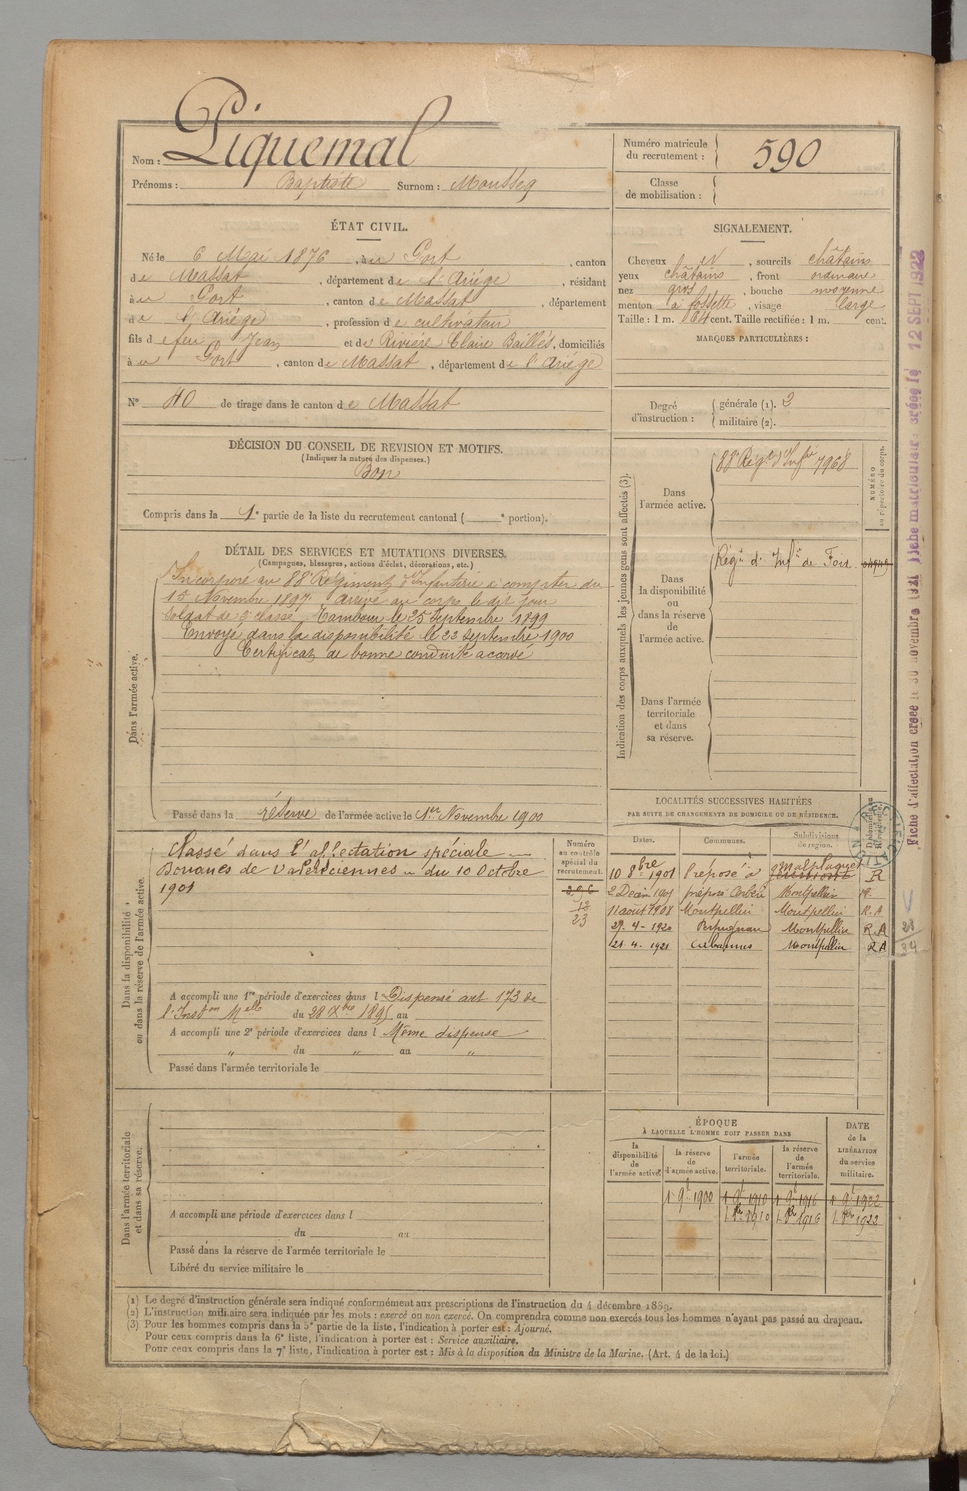 Nom : Piquemal
Prénoms : Baptiste Surnom : Mousseq
Numéro matricule
du recrutement : 590
Classe
de mobilisation :
ÉTAT CIVIL.
Né le 6 Mai 1876, à Port, canton
de Massat, département de l'Ariège, résidant
à Port, canton de Massat, département
de l'Ariège, profession de cultivateur
fils de feu Jean et de Rivière Claire Baillés, domiciliés
à Port, canton de Massat, département de l'Ariège
N° 40 de tirage dans le canton de Massat
SIGNALEMENT.
Cheveux et, sourcils châtains
yeux châtains, front ordinaire
nez gros, bouche moyenne
menton à fossette, visage large
Taille : 1 m. 64 cent. Taille rectifiée : 1 m. cent.
MARQUES PARTICULIÈRES :
Degré
d'instruction :
générale (1). 3
militaire (2).
DÉCISION DU CONSEIL DE REVISION ET MOTIFS.
(Indiquer la nature des dispenses.)
Bon
Compris dans la 1e partie de la liste du recrutement cantonal ( e portion).
Indication des corps auxquels les jeunes gens sont affectés (3).
NUMÉRO
au répertoire du corps.
Dans
l'armée active.
88e Régt d'Infie 7968
Dans
la disponibilité
ou
dans la réserve de
l'armée active.
Régt d'Infie de Foix
Dans l'armée
territoriale
et dans
sa réserve.
DÉTAIL DES SERVICES ET MUTATIONS DIVERSES.
(Campagnes, blessures, actions d'éclat, décorations, etc.)
Dans l'armée active.
Incorporé au 88e Régiment d'Infanterie à compter du
15 Novembre 1897. Arrivé au corps le dit jour
soldat de 2e classe, Tambour le 25 Septembre 1899
Envoyé dans la disponibilité le 22 Septembre 1900
Certificat de bonne conduite accordé
Passé dans la réserve de l'armée active le 1er Novembre 1900
Dans la disponibilité
ou dans la réserve de l'armée active.
Classé dans l'affectation spéciale
Douanes de Valenciennes du 10 Octobre
1901
Numéro
au contrôle
spécial du
recrutement.
12
23
A accompli une 1re période d'exercices dans l Dispensé art 173 de
l'Inston Melle du 28 Xbre 1895 au
A accompli une 2e période d'exercices dans l Même dispense
" du " au "
Passé dans l'armée territoriale le
LOCALITÉS SUCCESSIVES HABITÉES
PAR SUITE DE CHANGEMENTS DE DOMICILE OU DE RÉSIDENCE.
Dates. Communes. Subdivisions
de région.
10 8bre 1901 préposé à Malplaquet R
2 Décem 1901 préposé Montpellier R.
11 août 1908 Montpellier Montpellier R.A
29. 4 - 1920 Perpignan Montpellier R.A
21. 4. 1921 Cabannes Montpellier RA
Dans l'armée territoriale
et dans sa réserve.
A accompli une période d'exercices dans l
du au
Passé dans la réserve de l'armée territoriale le
Libéré du service militaire le
ÉPOQUE
À LAQUELLE L'HOMME DOIT PASSER DANS
DATE
de la
LIBÉRATION
du service
militaire.
la
disponibilité
de
l'armée active.
la réserve
de
l'armée active.
l'armée
territoriale.
la réserve
de
l'armée
territoriale.
1 9bre 1900 1 9bre 1910 1 9bre 1916 1 9bre 1922
1 8bre 1910 1 8bre 1916 1 8bre 1922
(1) Le degré d'instruction générale sera indiqué conformément aux prescriptions de l'instruction du 4 décembre 1889.
(2) L'instruction militaire sera indiquée par les mots : exercé ou non exercé. On comprendra comme non exercés tous les hommes n'ayant pas passé au drapeau.
(3) Pour les hommes compris dans la 5e partie de la liste, l'indication à porter est : Ajourné.
Pour ceux compris dans la 6e liste, l'indication à porter est : Service auxiliaire.
Pour ceux compris dans la 7e liste, l'indication à porter est : Mis à la disposition du Ministre de la Marine. (Art. 4 de la loi.)
Fiche d'affectation créée le 30 novembre 1921 Fiche matriculaire créée le 12 SEPT 1922